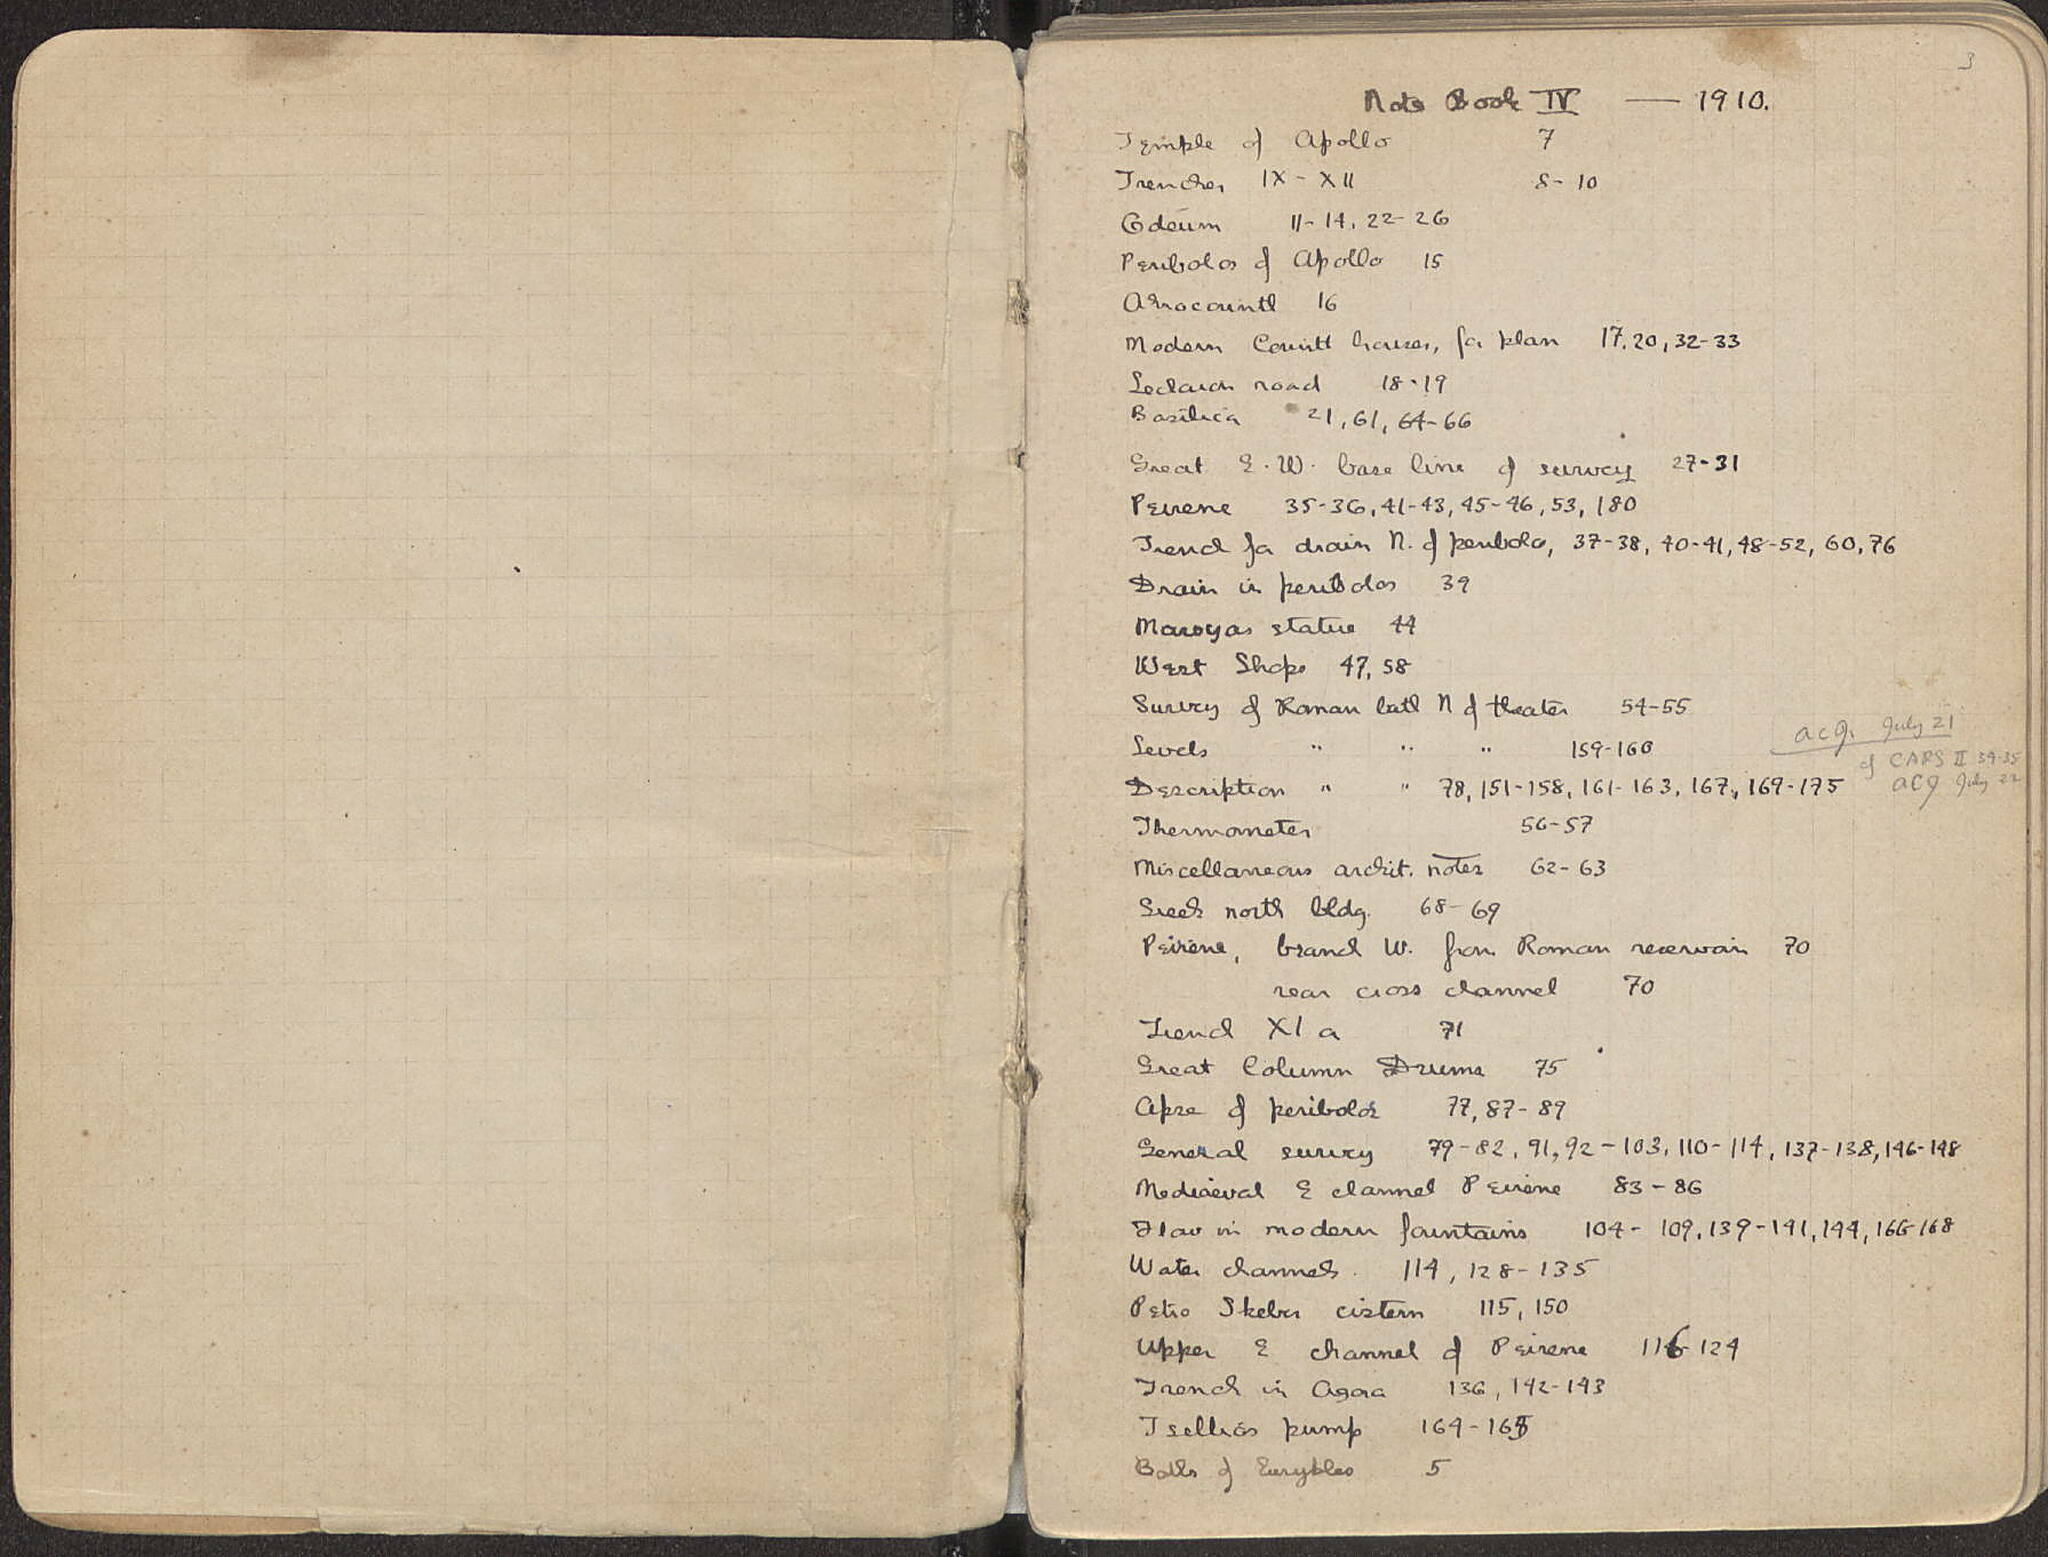 3
Note Book IV — 1910.
Temple of Apollo 7
Trenches IX - XII 8-10
Odeum 11-14, 22-26
Peribolos of Apollo 15
Acrocorinth 16
Modern Corinth houses, for plan 17, 20, 32-33
Lechaion road 18-19
Basilica 21, 61, 64-66
Great E.W. base line of survey 27-31
Peirene 35-36, 41-43, 45-46, 53, 180
Trench for drain N. of peribolos, 37-38, 40-41, 48-52, 60, 76
Drain in peribolos 39
Marsyas statue 44
West Shops 47, 58
Survey of Roman bath N of theater 54-55
Levels " " " 159-160
acq. July 21
cf CAPS II 34-35
Description " " 78, 151-158, 161-163, 167, 169-175
acq July 22
Thermometer 56-57
Miscellaneous archit. notes 62-63
Greek north bldg. 68-69
Peirene, branch W. from Roman reservoir 70
rear cross channel 70
Trench XI a 71
Great Column Drums 75
Apse of peribolos 77, 87-89
General survey 79-82, 91, 92-103, 110-114, 137-138, 146-148
Mediaeval E channel Peirene 83-86
Flow in modern fountains 104-109, 139-141, 144, 166-168
Water channels. 114, 128-135
Petro Skebri cistern 115, 150
Upper E channel of Peirene 116-124
Trench in Agora 136, 142-143
Tsellios pump 164-165
Baths of Eurykles 5